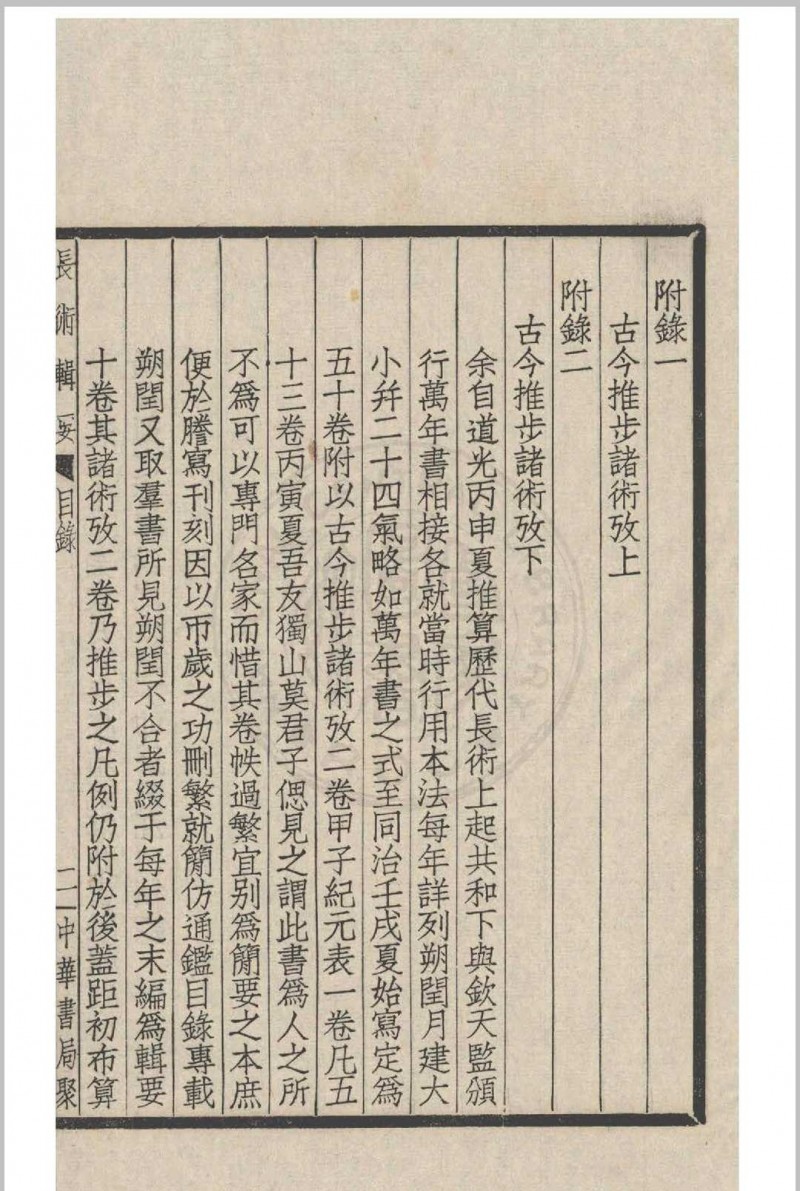 附錄一
古今推步諸術攷上
附錄二
古今推步諸術攷下
余自道光丙申夏推算歷代長術上起共和下與欽天監頒
行萬年書相接各就當時行用本法每年詳列朔閏月建大
小幷二十四氣略如萬年書之式至同治壬戌夏始寫定爲
五十卷附以古今推步諸術攷二卷甲子紀元表一卷凡五
十三卷丙寅夏吾友獨山莫君子偲見之謂此書爲人之所
不爲可以專門名家而惜其卷帙過繁宜別爲簡要之本庶
便於謄寫刊刻因以帀歲之功刪繁就簡仿通鑑目錄專載
朔閏又取羣書所見朔閏不合者綴于每年之末編爲輯要
十卷其諸術攷二卷乃推步之凡例仍附於後蓋距初布算
長術輯要 目錄 二一中華書局聚